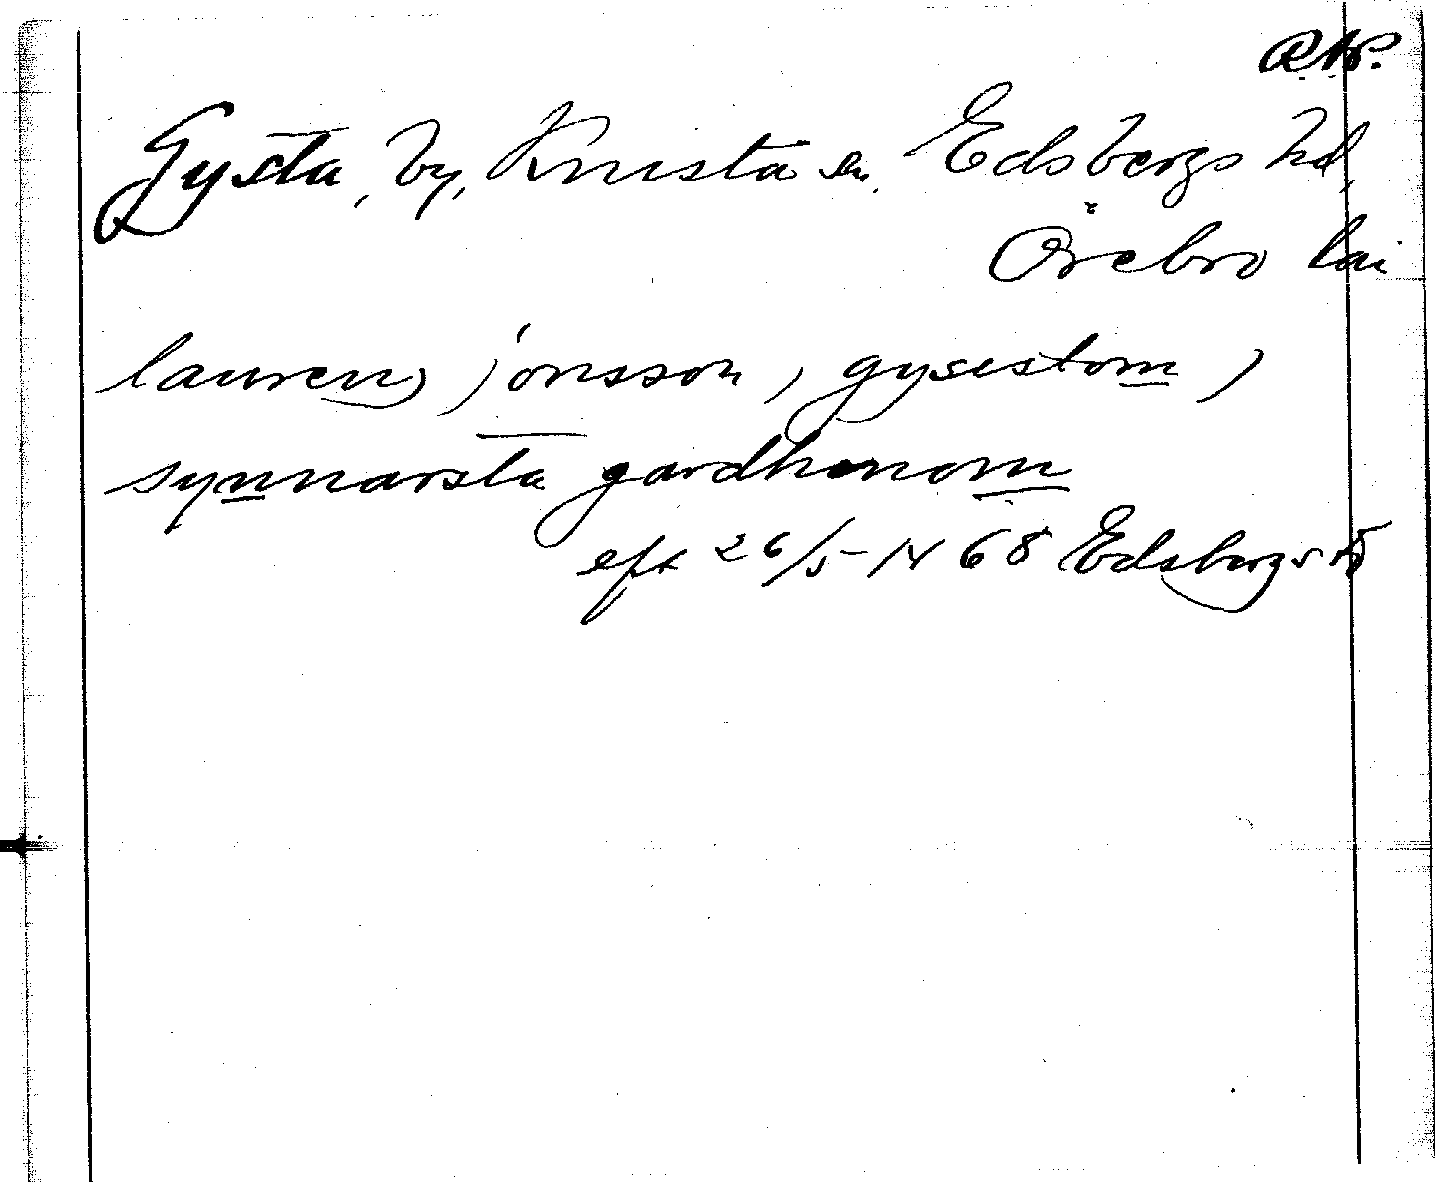 Gysta, by, Knista sn. Edsbergs hd,
Örebro län
laurens jonsson, gysestom,
synnarsta gardhenom
eft 26/5-1468 Edsbergs